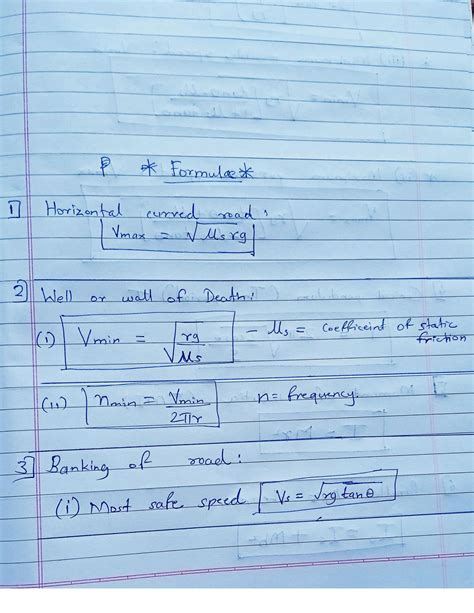 * Formulae *
1] Horizontal curved road :
Vmax = √μs rg
2] Well or wall of Death :
(i) Vmin = √rg/μs - μs = coefficeint of static friction
(ii) nmin = Vmin/2πr n = frequency.
3] Banking of road :
(i) Most safe speed Vs = √rg tanθ